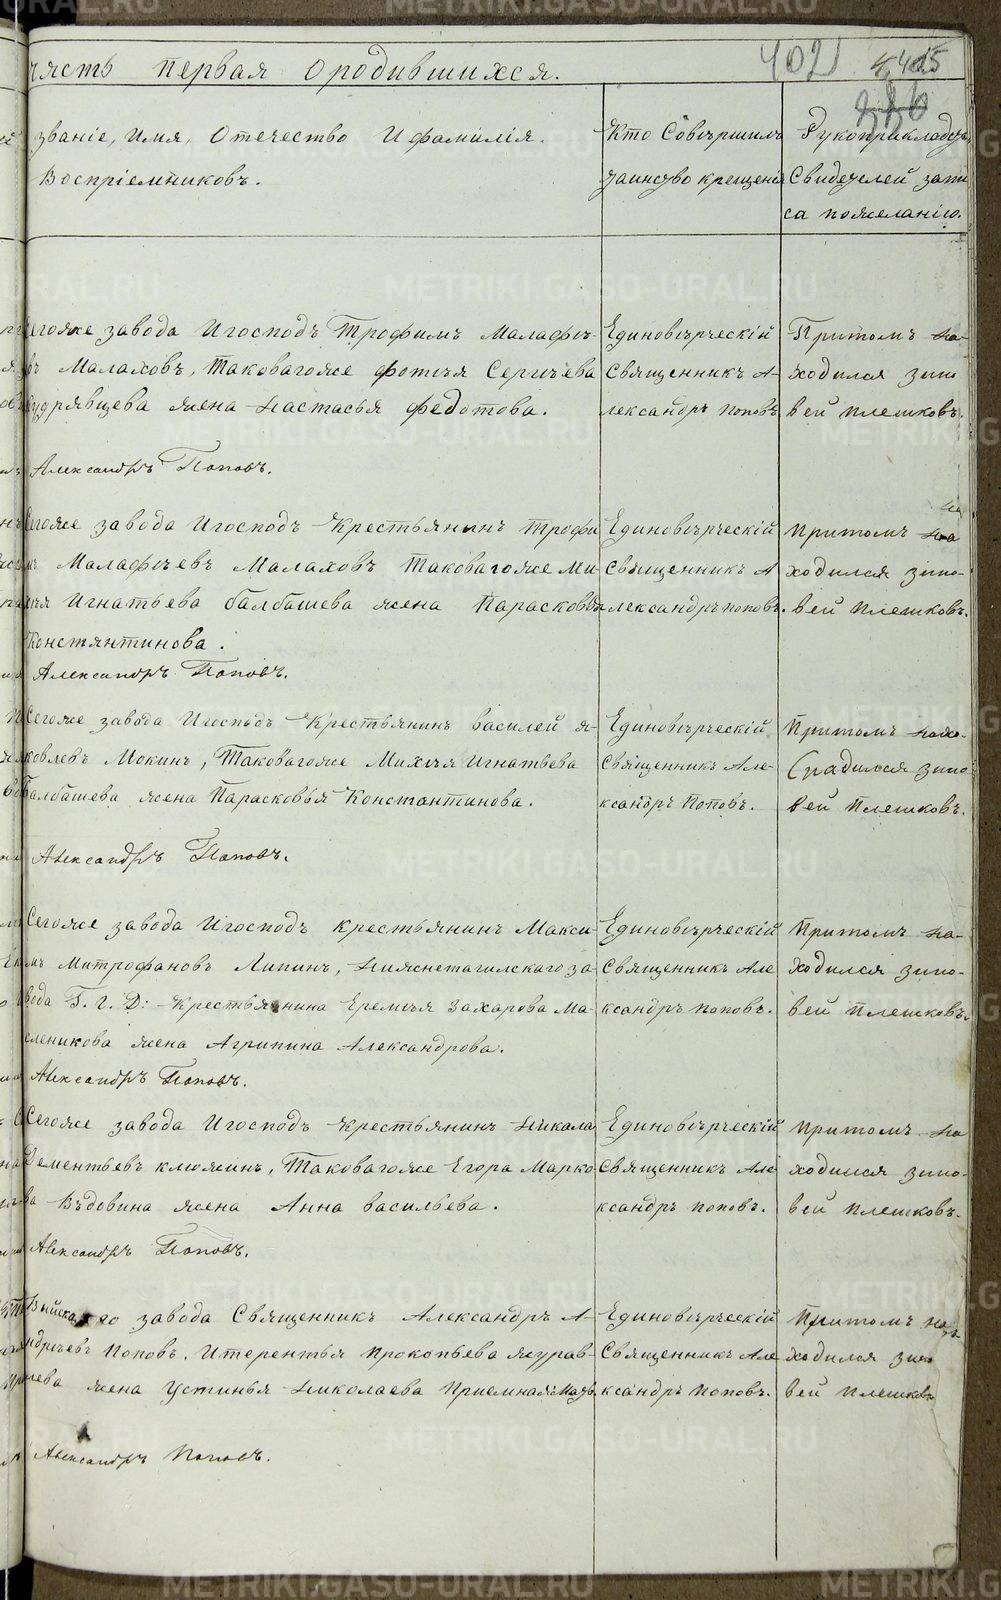 часть первая о родившихся.
402
званіе, Имя, Отечество И фамилія.
Воспріемниковъ.
Кто Совѣршилъ
таинство крещенія
Рукоприкладсъ
Свидетелей запи
са пожеланію.
Сегоже завода Игосподъ Трофимъ Малафѣ-
въ Малаховъ, Таковагоже фотия Сергиева
Кудрявцева жена Настасья федотова.
Александръ Поповъ.
Единовѣрческій
Священникъ А-
лександръ поповъ
Притомъ на-
ходился зино
вей плешковъ.
Сегоже завода Игосподъ Крестьянинъ Трофи
мъ Малафѣевъ Малаховъ Таковагоже Ми-
хея Игнатьева балбашева жена Парасковья
Констянтинова.
Александръ Поповъ.
Единовѣрческій
Священникъ А
лександръ поповъ.
Притомъ на
ходился зино-
вей плешковъ.
Сегоже завода Игосподъ Крестьянинъ василей я-
ковлевъ Мокинъ, Таковагоже Михея Игнатьева
балбашева жена Парасковья Константинова.
Александръ Поповъ.
Единовѣрческій
Священникъ Але-
ксандръ Поповъ.
Притомъ нахо-
дился зино
вей Плешковъ.
Сегоже завода Игосподъ крестьянинъ Макси-
мъ Митрофановъ Липинъ, Нижнетагилскаго за-
вода Г. Г. Д: Крестьянина Еремея Захарова Ма-
сленикова жена Агрипина Александрова.
Александръ Поповъ.
Единовѣрческій
Священникъ Але
ксандръ поповъ.
Притомъ на-
ходился зино-
вей плешковъ.
Сегоже завода Игосподъ крестьянинъ Никала
Дементьевъ клюжинъ, Таковагоже Егора Марко
ва Вѣдовина жена Анна васильева.
Александръ Поповъ.
Единовѣрческій
Священникъ Але
ксандръ поповъ.
Притомъ на
ходился зино-
вей плешковъ.
Выйскаго завода Священникъ Александръ А-
ндрѣевъ Поповъ. Итерентья прокопьева журав-
лева жена Устинья Николаева
Александръ Поповъ.
Единовѣрческій
Священникъ Але
ксандръ Поповъ.
Притомъ на
ходился зино
вей Плешковъ
METRIKI.GASO-URAL.RU